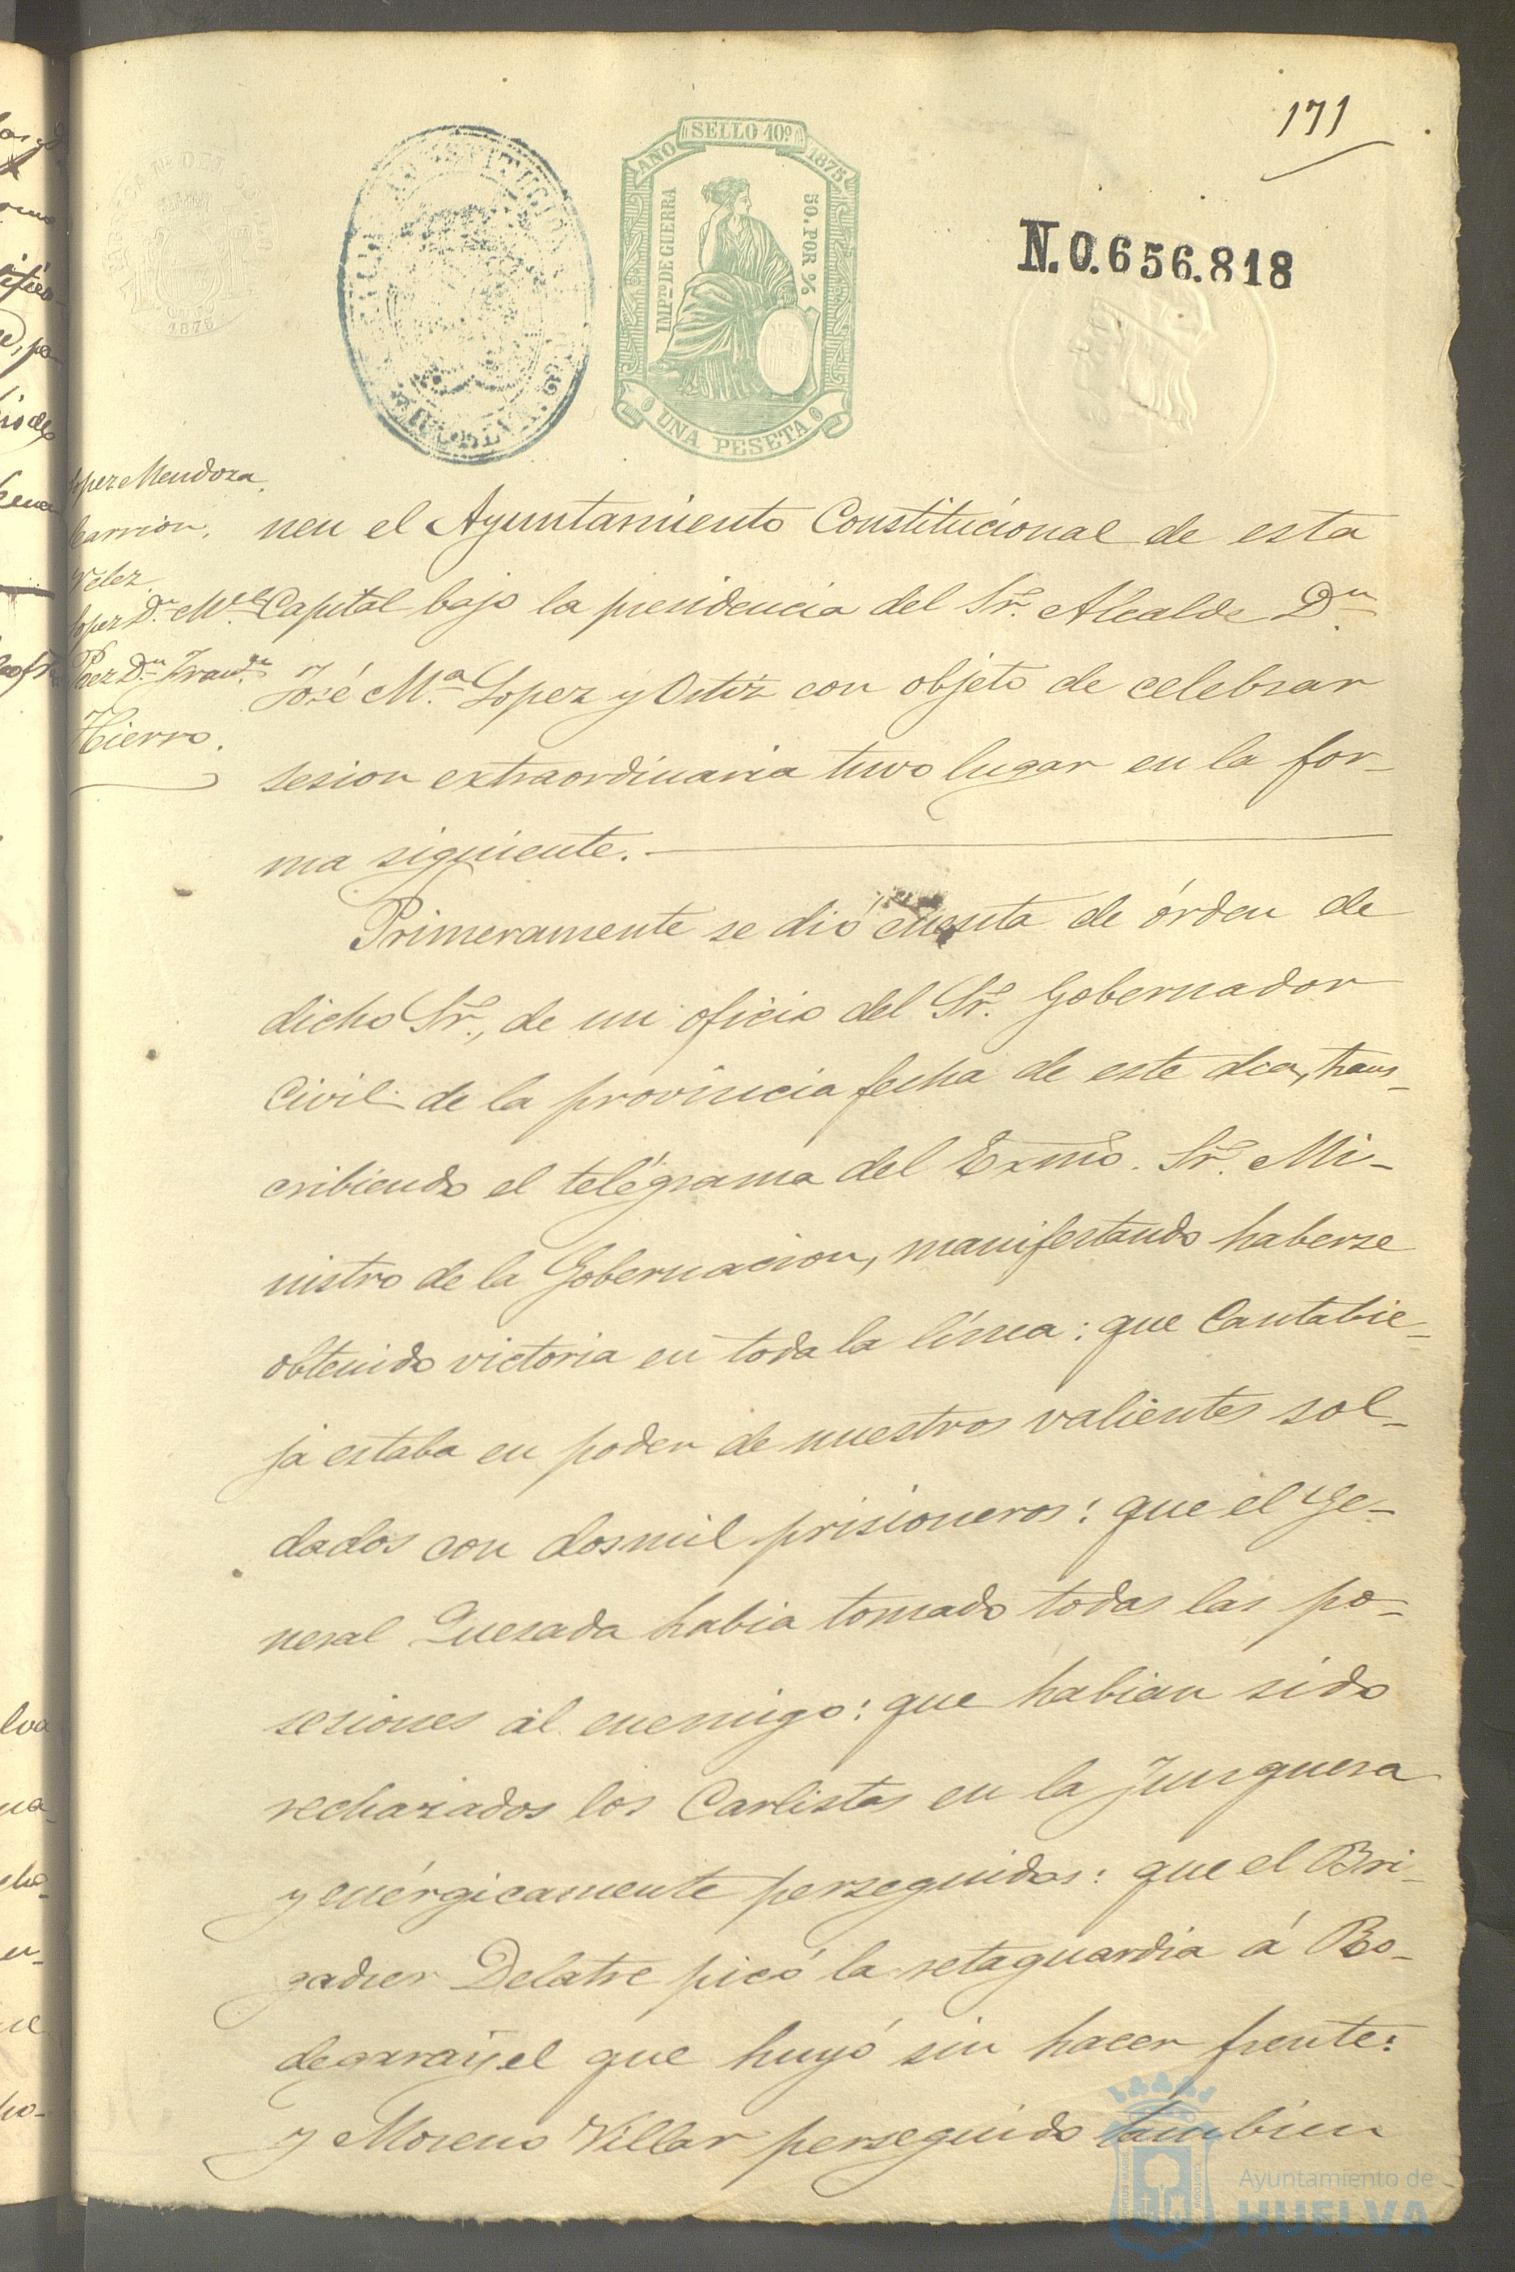 171
SELLO 10º
AÑO 1875
IMPTO DE GUERRA
50. POR %
UNA PESETA
N.0.656.818
1875
Lopez Mendoza,
Carrion,
Velez
Lopez Dn. Ml.
Paez Dn. Frando.
Hierro.
nen el Ayuntamiento Constitucional de esta
Capital bajo la presidencia del Sr. Alcalde Dn.
José Ma. Lopez y Ortiz con objeto de celebrar
sesion extraordinaria tuvo lugar en la for-
ma siguiente.
Primeramente se dió cuenta de órden de
dicho Sr., de un oficio del Sr. Gobernador
Civil de la provincia fecha de este dia, trans-
cribiendo el telégrama del Exmo. Sr. Mi-
nistro de la Gobernacion, manifestando haberse
obtenido victoria en toda la línea: que Cantabie-
ja estaba en poder de nuestros valientes sol-
dados con dosmil prisioneros: que el Ge-
neral Quesada habia tomado todas las po-
sesiones al enemigo: que habian sido
rechazados los Carlistas en la Junquera
y enérgicamente perseguidos: que el Bri-
gadier Delatre picó la retaguardia á Bo-
degaray, el que huyó sin hacer frente:
y Moreno Villar perseguido tambien
Ayuntamiento de
HUELVA